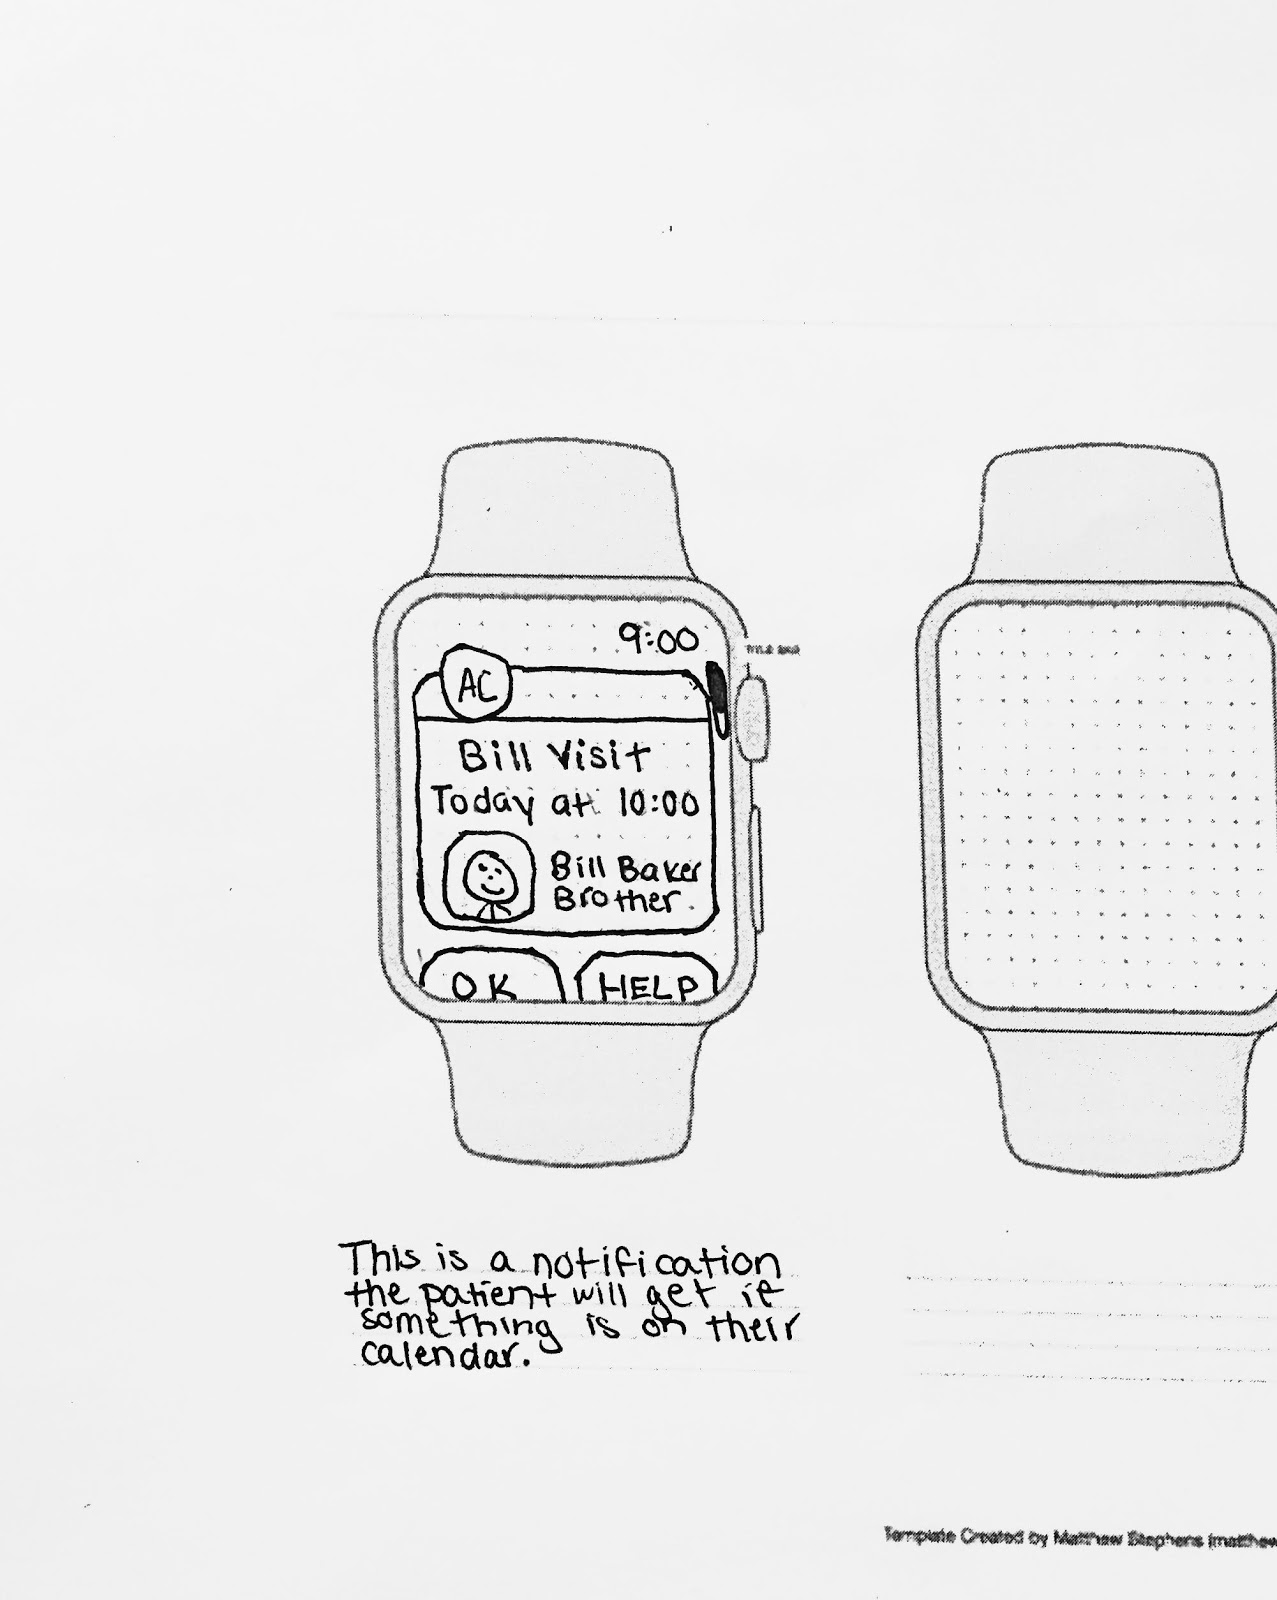 9:00
AC
Bill Visit
Today at 10:00
Bill Baker
Brother
OK
HELP
This is a notification
the patient will get if
something is on their
calendar.
Template Created by Matthew Stephens (matthew